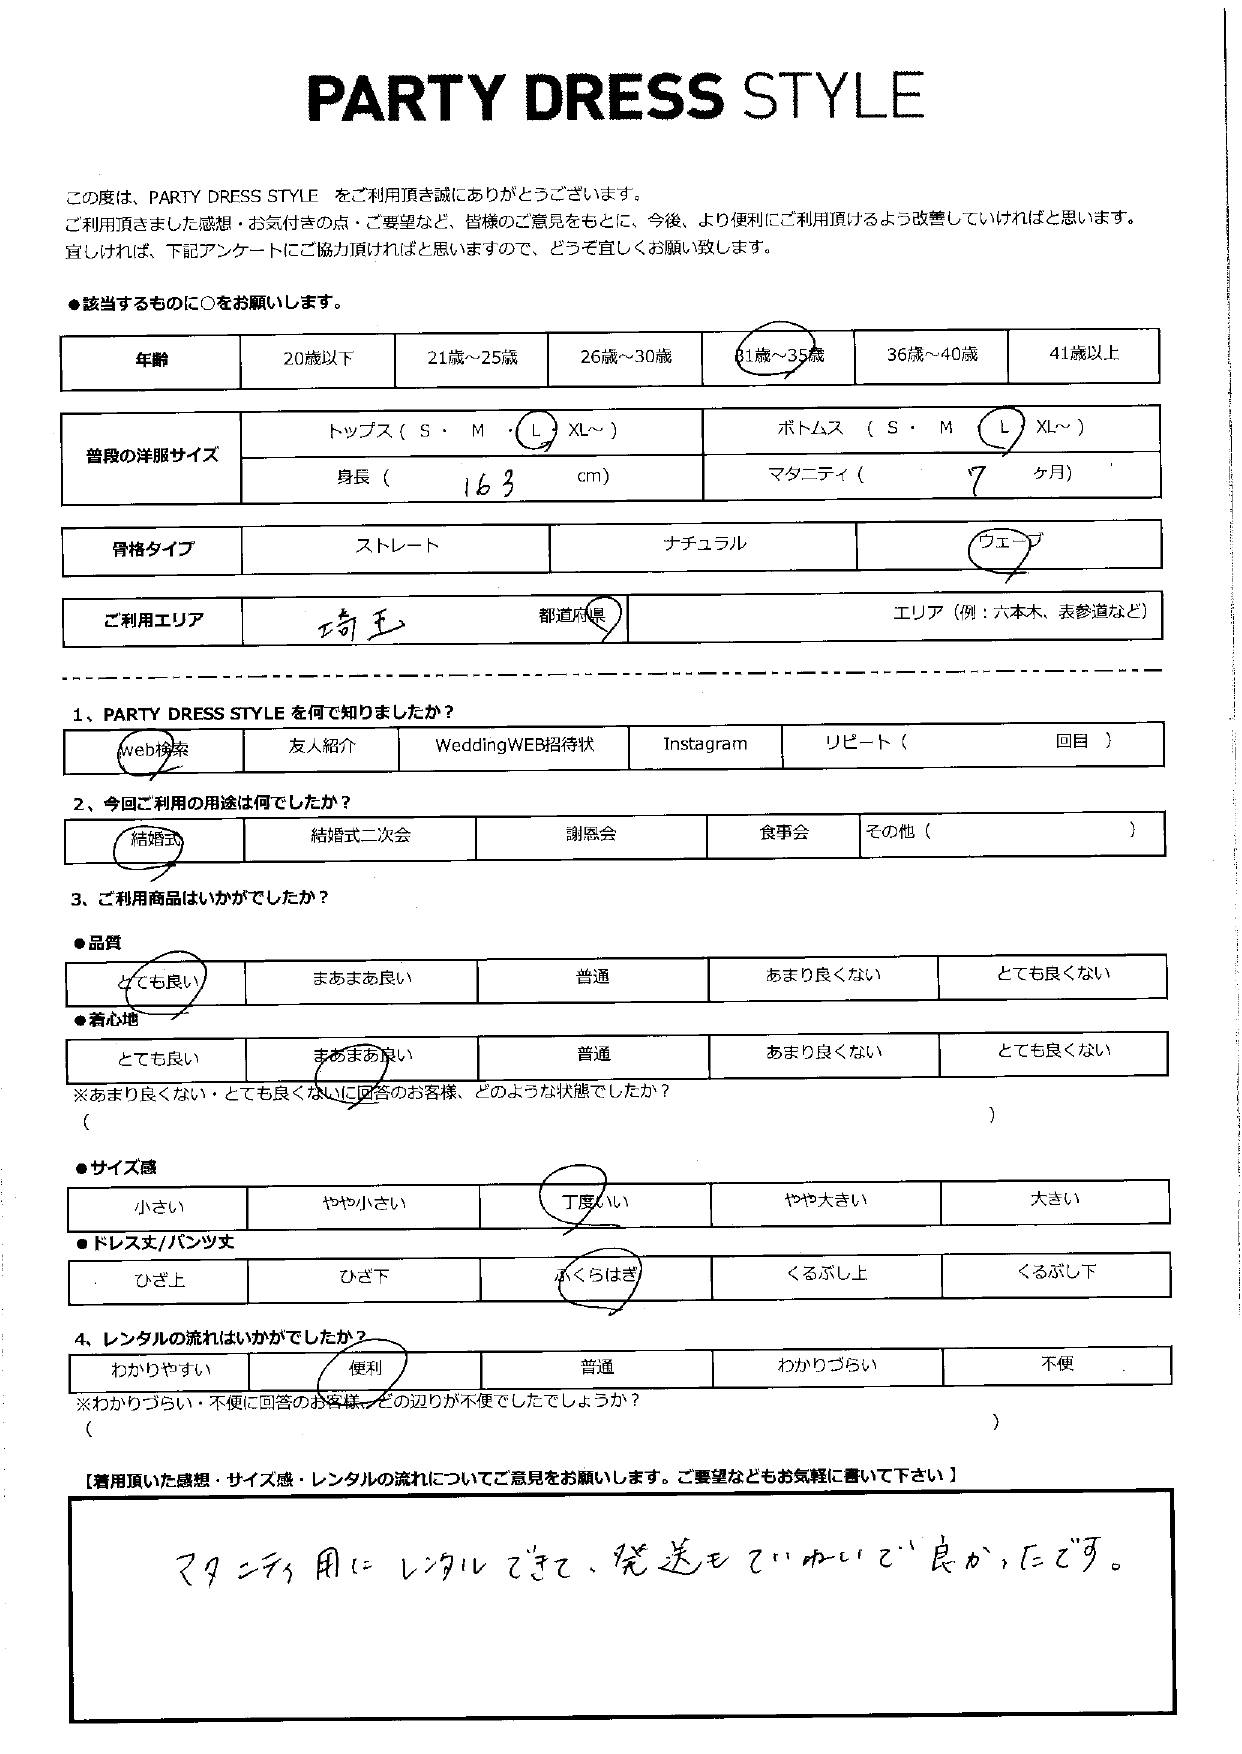 PARTY DRESS STYLE
この度は、PARTY DRESS STYLE をご利用頂き誠にありがとうございます。
ご利用頂きました感想・お気付きの点・ご要望など、皆様のご意見をもとに、今後、より便利にご利用頂けるよう改善していければと思います。
宜しければ、下記アンケートにご協力頂ければと思いますので、どうぞ宜しくお願い致します。
●該当するものに○をお願いします。
年齢 20歳以下 21歳～25歳 26歳～30歳 31歳～35歳 36歳～40歳 41歳以上
普段の洋服サイズ
トップス（ S ・ M ・ L ・ XL～ ） ボトムス （ S ・ M L XL～ ）
身長（ 163 cm） マタニティ（ 7 ヶ月）
骨格タイプ ストレート ナチュラル ウェーブ
ご利用エリア 埼玉 都道府県 エリア（例：六本木、表参道など）
1、PARTY DRESS STYLE を何で知りましたか？
web検索 友人紹介 WeddingWEB招待状 Instagram リピート（ 回目 ）
2、今回ご利用の用途は何でしたか？
結婚式 結婚式二次会 謝恩会 食事会 その他（ ）
3、ご利用商品はいかがでしたか？
●品質
とても良い まあまあ良い 普通 あまり良くない とても良くない
●着心地
とても良い まあまあ良い 普通 あまり良くない とても良くない
※あまり良くない・とても良くないに回答のお客様、どのような状態でしたか？
（ ）
●サイズ感
小さい やや小さい 丁度いい やや大きい 大きい
●ドレス丈/パンツ丈
ひざ上 ひざ下 ふくらはぎ くるぶし上 くるぶし下
4、レンタルの流れはいかがでしたか？
わかりやすい 便利 普通 わかりづらい 不便
※わかりづらい・不便に回答のお客様、どの辺りが不便でしたでしょうか？
（ ）
【着用頂いた感想・サイズ感・レンタルの流れについてご意見をお願いします。ご要望などもお気軽に書いて下さい】
マタニティ用にレンタルできて、発送もていねいで良かったです。